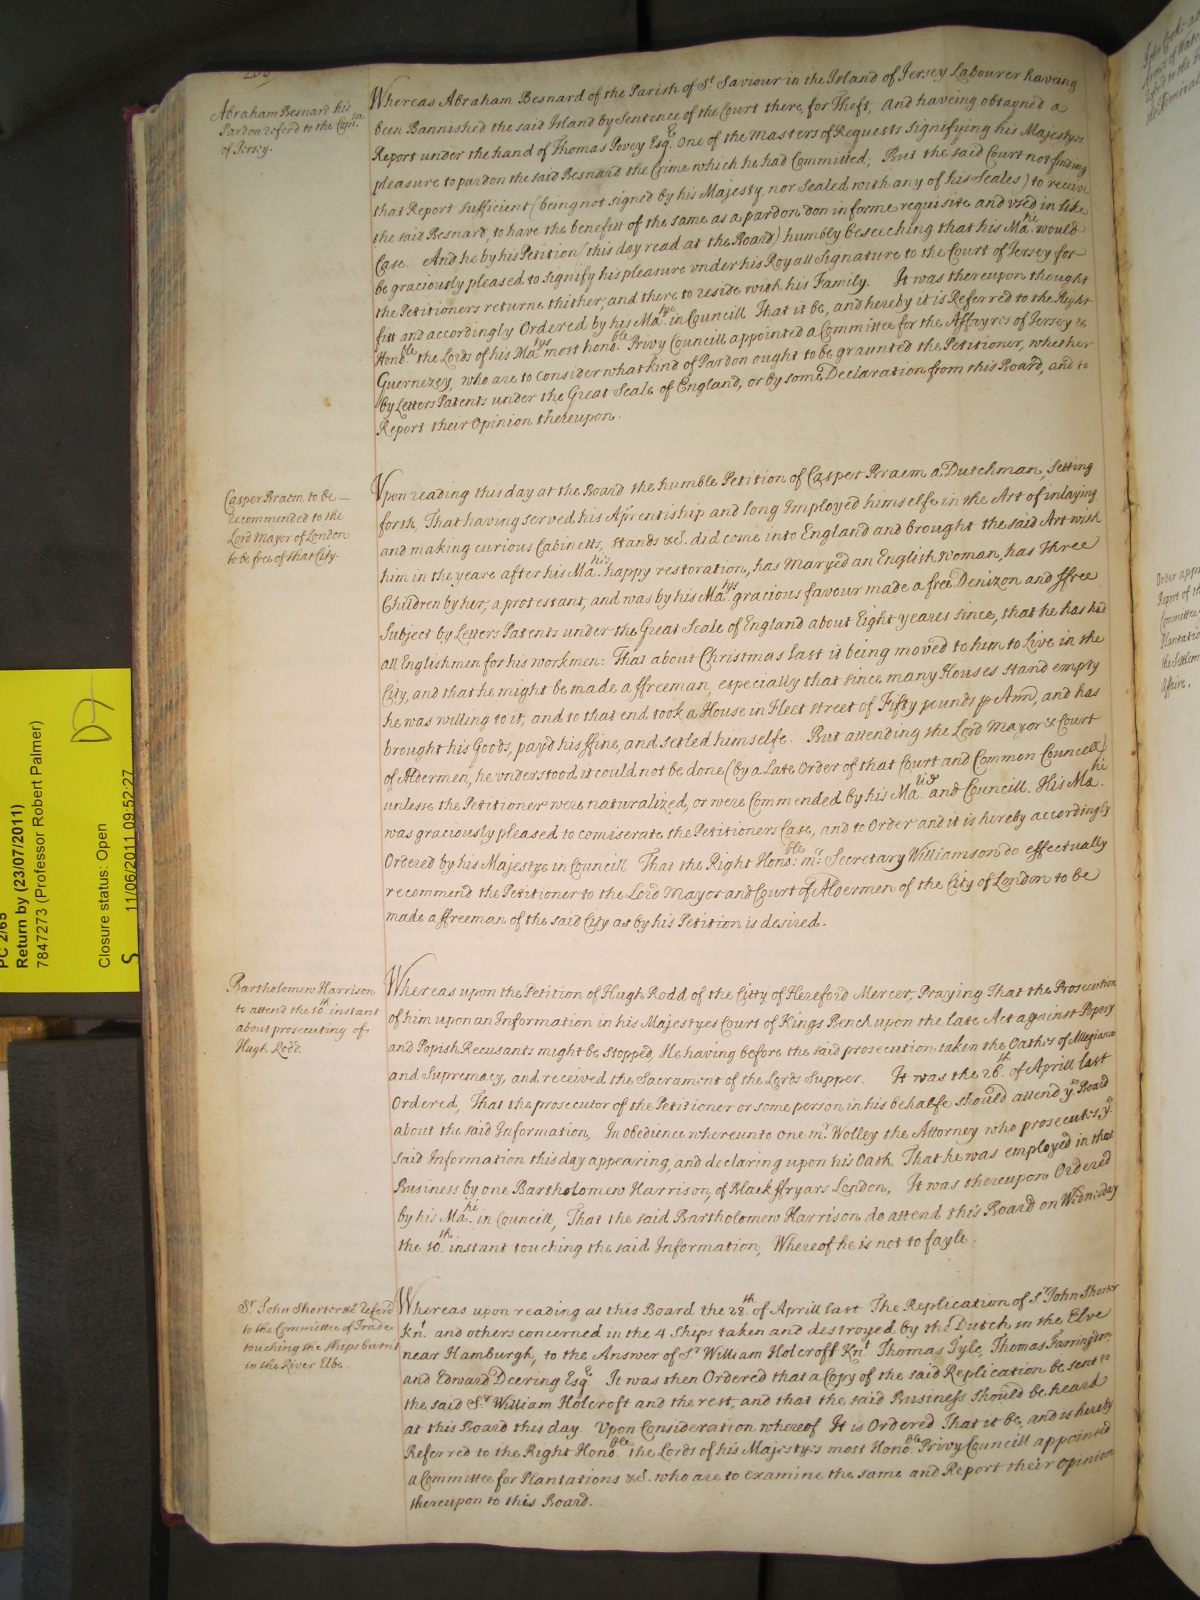 Abraham Besnard his
Pardon referd to the Com.tee
of Jersey.
Whereas Abraham Besnard of the Parish of St Saviour in the Island of Jersey Labourer haveing
been Bannished the said Island by Sentence of the Court there, for Theft, And haveing obtayned a
Report under the hand of Thomas Povey Esq.r one of the Masters of Requests signifying his Majestyes
pleasure to pardon the said Besnard the Crime which he had Committed; But the said Court not finding
that Report sufficient (being not signed by his Majesty nor Sealed with any of his Seales) to receive
the said Besnard, to have the benefitt of the same as a pardon don in forme requisite and vsed in like
Case. And he by his Petition (this day read at the Board) humbly beseeching that his Ma.tie would
be graciously pleased to signify his pleasure vnder his Royall Signature to the Court of Jersey for
the Petitioners returne thither, and there to reside with his Family. It was thereupon thought
fitt and accordingly Ordered by his Ma.tye in Councill That it be, and hereby it is Referred to the Right
Hono.ble the Lords of his Ma.tys most hono.ble Privy Councill appointed a Committee for the Affayres of Jersey &
Guernezey, who are to consider what kind of Pardon ought to be graunted the Petitioner, whether
by Letters Patents under the Great Seale of England, or by some Declaration from this Board, and to
Report their Opinion thereupon.
Casper Braem to be
recommended to the
Lord Mayor of London
to be free of that City.
Vpon reading this day at the Board the humble Petition of Casper Braem a Dutchman, Setting
forth, That having served his Aprentiship and long Imployed himselfe in the Art of inlaying
and making curious Cabinetts, Stands &c. did come into England and brought the said Art with
him in the yeare after his Ma.ties happy restoration, has Maryed an English woman, has Three
Children by her, a protestant, and was by his Ma.tys gracious favour made a free Denizon and ffree
Subject by Letters Patents under the Great Seale of England about Eight yeares since, that he has had
all Englishmen for his workmen: That about Christmas last it being moved to him to Live in the
City, and that he might be made a ffreeman, especially that since many Houses stand empty
he was willing to it, and to that end took a House in Fleet street of Fifty pounds p Ann, and has
brought his Goods, payd his ffine, and setled himselfe. But attending the Lord Mayor & Court
of Aldermen, he vnderstood it could not be done (by a Late Order of that Court and Common Councell)
unlesse the Petitioner were naturalized, or were Commended by his Ma.tie and Councill. His Ma.tie
was graciously pleased to comiserate the Petitioners Case, and to Order and it is hereby accordingly
Ordered by his Majestye in Councill That the Right Hono.ble mr. Secretary Williamson do effectually
recommend the Petitioner to the Lord Mayor and Court of Aldermen of the City of London to be
made a ffreeman of the said City as by his Petition is desired.
Bartholomew Harrison
to attend the 10.th instant
about prosecuting of
Hugh Rodd.
Whereas upon the Petition of Hugh Rodd of the Citty of Hereford Mercer, Praying That the Prosecution
of him upon an Information in his Majestyes Court of Kings Bench upon the late Act against Popery
and Popish Recusants might be stopped, He having before the said prosecution taken the Oathes of Allegiance
and Supremacy, and received the Sacrament of the Lords Supper. It was the 26.th of Aprill last
Ordered, That the prosecutor of the Petitioner or some person in his behalfe should attend ye Board
about the said Information, In obedience whereunto one mr. Wolley the Attorney who prosecutes ye
said Information this day appearing, and declaring upon his Oath That he was employed in that
Business by one Bartholomew Harrison, of Black ffryars London, It was thereupon Ordered
by his Ma.tie in Councill, That the said Bartholomew Harrison do attend this Board on Wednesday
the 10.th instant touching the said Information, Whereof he is not to fayle.
Sr. John Shorter &c Referd
to the Committee of Trade
touching the ships burnt
in the River Elbe.
Whereas upon reading at this Board the 28.th of Aprill last The Replication of Sr. John Shorter
Knt. and others concerned in the 4 Ships taken and destroyed by the Dutch in the Elve
near Hamburgh, to the Answer of Sr William Holcroft Knt Thomas Tyle, Thomas Farringdon
and Edward Deering Esq.r It was then Ordered that a Copy of the said Replication be sent to
the said Sr William Holcroft and the rest, and that the said Business should be heard
at this Board this day. Upon Consideration whereof It is Ordered That it be, and is hereby
Referred to the Right Hono.ble the Lords of his Majestys most Hono.ble Privy Councill appointed
a Committee for Plantations &c. who are to examine the same and Report their opinion
thereupon to this Board.
PC 2/65
Return by (23/07/2011)
7847273 (Professor Robert Palmer)
Closure status: Open
S 11/06/2011 09:52:27
D7
Report of
Committee
Plantatio
Affaire.